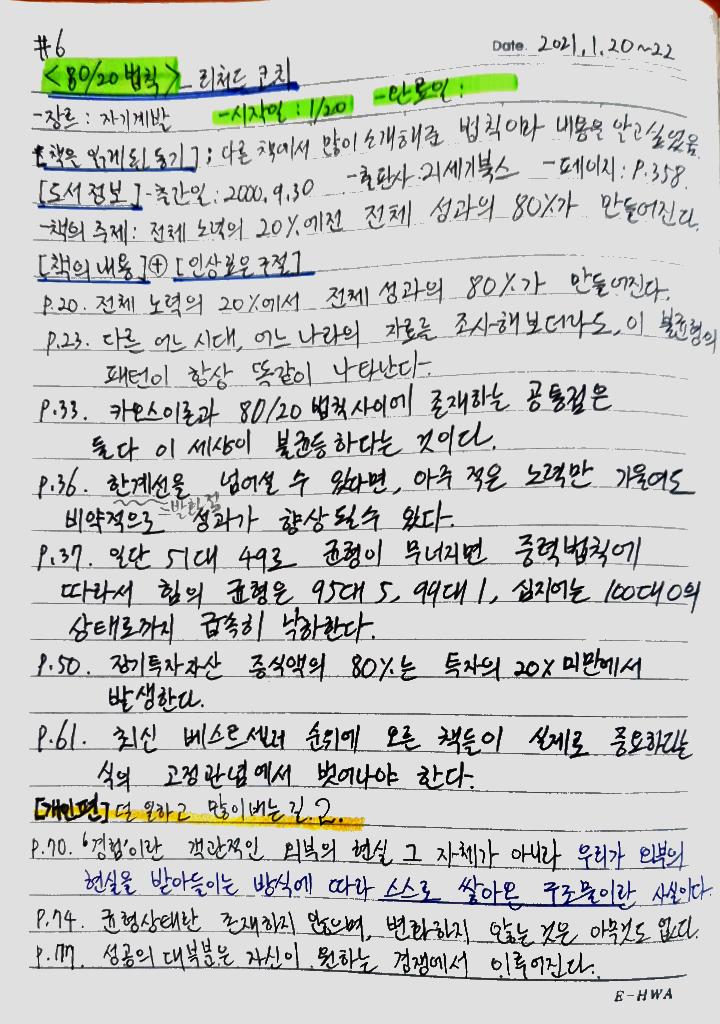 #6
Date 2021.1.20~22
<80/20 법칙> 리처드 코치
-장르 : 자기계발 -시작일 : 1/20 -완료일 :
[책을 읽게된 동기] ; 다른 책에서 많이 소개해준 법칙이라 내용을 알고싶었음
[도서정보] -출간일 : 2000.9.30 -출판사 21세기북스 -페이지 : P.358
-책의 주제 : 전체 노력의 20%에전 전체 성과의 80%가 만들어진다.
[책의 내용] ⊕ [인상깊은 구절]
P.20. 전체 노력의 20%에서 전체 성과의 80%가 만들어진다.
P.23. 다른 어느 시대, 어느 나라의 자료를 조사해보더라도, 이 불균형의
패턴이 항상 똑같이 나타난다.
P.33. 카오스이론과 80/20 법칙사이에 존재하는 공통점은
둘다 이 세상이 불균등하다는 것이다.
P.36. 한계선을 넘어설 수 있다면, 아주 적은 노력만 기울여도
=발화점
비약적으로 성과가 향상될수 있다.
P.37. 일단 51대 49로 균형이 무너지면 중력법칙에
따라서 힘의 균형은 95대 5, 99대 1, 심지어는 100대 0의
상태로까지 급속히 낙하한다.
P.50. 장기투자자산 증식액의 80%는 투자의 20% 미만에서
발생한다.
P.61. 최신 베스트셀러 순위에 오른 책들이 실제로 중요하다는
식의 고정관념에서 벗어나야 한다.
[개인편] 덜 일하고 많이버는길 2.
P.70. '경험'이란 객관적인 외부의 현실 그 자체가 아니라 우리가 외부의
현실을 받아들이는 방식에 따라 스스로 쌓아온 구조물이란 사실이다.
P.74. 균형상태란 존재하지 않으며, 변화하지 않는 것은 아무것도 없다.
P.77. 성공의 대부분은 자신이 원하는 경쟁에서 이루어진다.
E-HWA